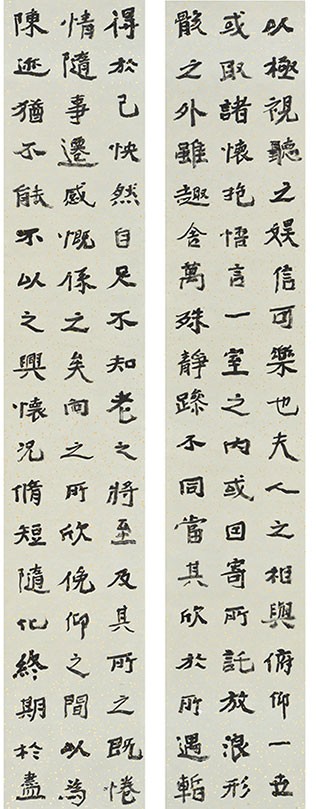 以極視聽之娛信可樂也夫人之相與俯仰一世
或取諸懷抱悟言一室之內或因寄所託放浪形
骸之外雖趣舍萬殊靜躁不同當其欣於所遇暫
得於己快然自足不知老之將至及其所之既惓
情隨事遷感慨係之矣向之所欣俛仰之間以為
陳迹猶不能不以之興懷況脩短隨化終期於盡